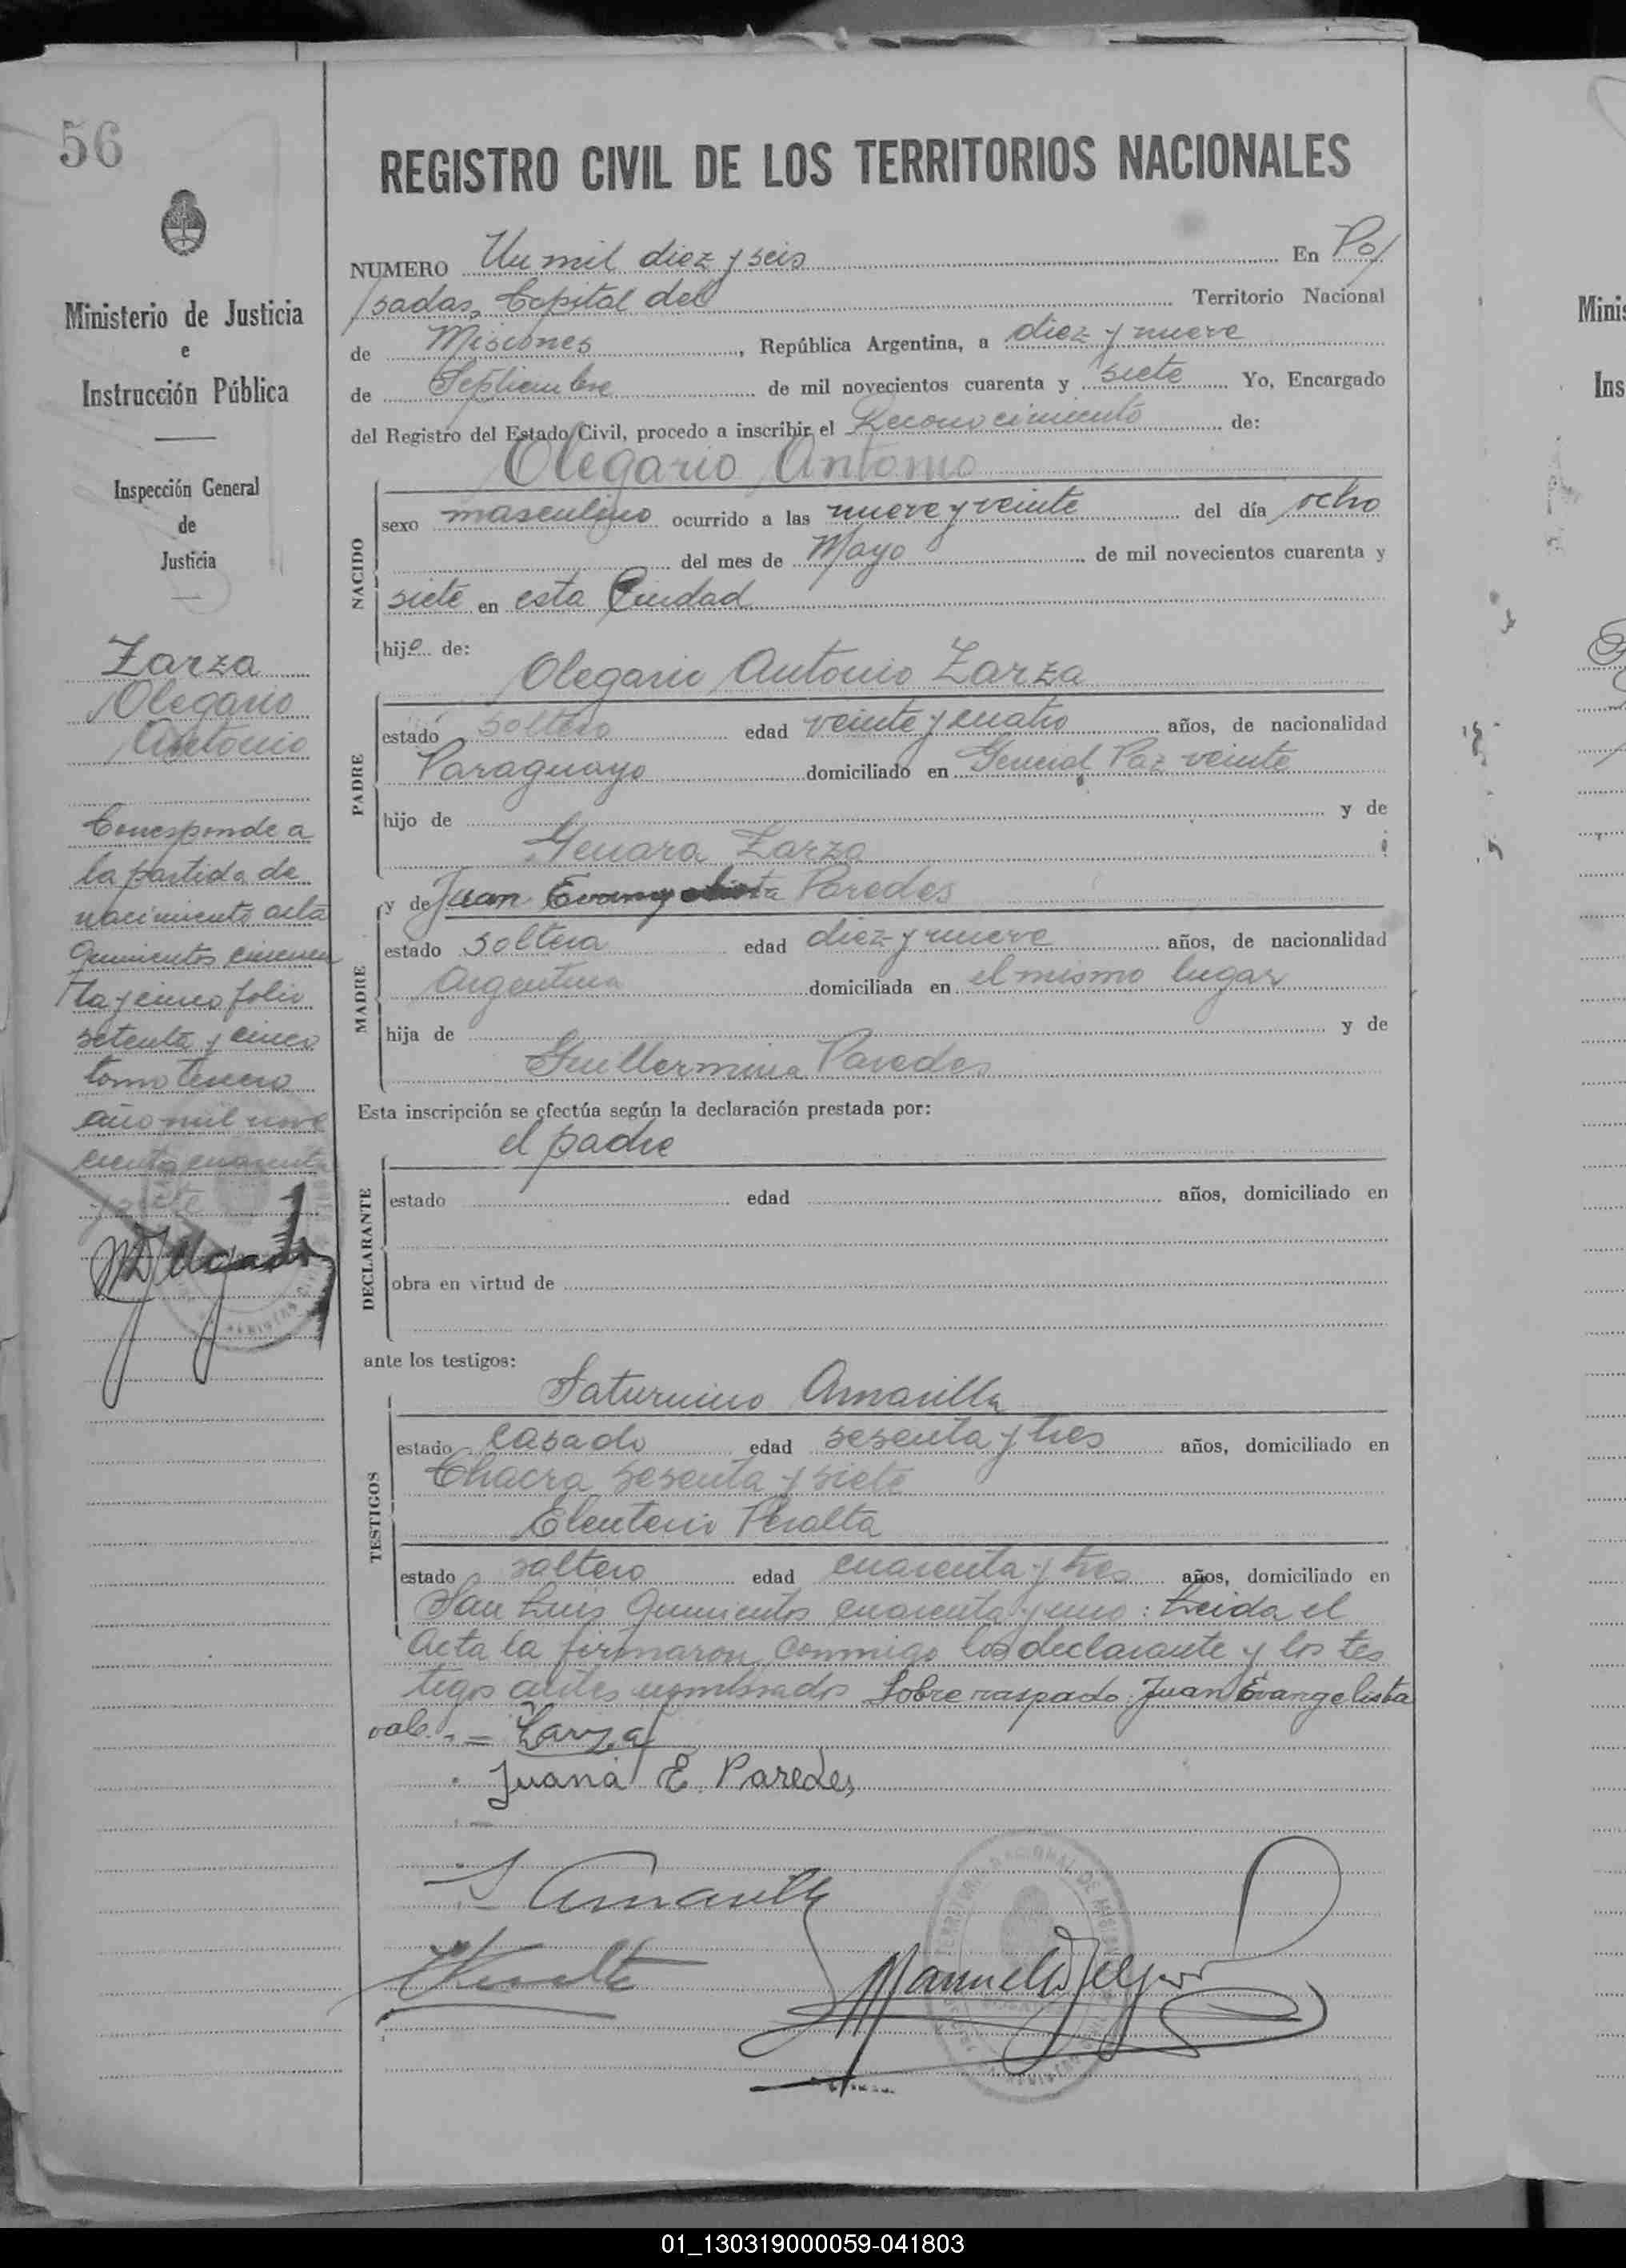 56
Ministerio de Justicia
e
Instrucción Pública
Inspección General
de
Justicia
Zarza
Olegario
Antonio
Corresponde a
la partida de
nacimiento acta
Quinientos cincuen
ta y cinco folio
setenta y cinco
tomo tercero
año mil nove
cientos cuarenta
y siete
MDelgado
REGISTRO CIVIL DE LOS TERRITORIOS NACIONALES
NUMERO Un mil diez y seis En Po/
/sadas, Capital del Territorio Nacional
de Misiones, República Argentina, a diez y nueve
de Septiembre de mil novecientos cuarenta y siete Yo, Encargado
del Registro del Estado Civil, procedo a inscribir el Reconocimiento de:
Olegario Antonio
NACIDO
sexo masculino ocurrido a las nueve y veinte del día ocho
del mes de Mayo de mil novecientos cuarenta y
siete en esta Ciudad
hijo de:
Olegario Antonio Zarza
PADRE
estado soltero edad veinte y cuatro años, de nacionalidad
Paraguayo domiciliado en General Paz veinte
hijo de y de
Genara Zarza
y de Juan Evangelista Paredes
MADRE
estado soltera edad diez y nueve años, de nacionalidad
Argentina domiciliada en el mismo lugar
hija de y de
Guillermina Paredes
Esta inscripción se efectúa según la declaración prestada por:
el padre
DECLARANTE
estado edad años, domiciliado en
obra en virtud de
ante los testigos:
Saturnino Amarilla
TESTIGOS
estado casado edad sesenta y tres años, domiciliado en
Chacra sesenta y siete
Eleuterio Peralta
estado soltero edad cuarenta y tres años, domiciliado en
San Luis Quinientos cuarenta y uno: Leida el
acta la firmaron conmigo los declarante y los tes
tigos antes nombrados Sobre raspado: Juan Evangelista
vale. = Zarza
Juana E. Paredes
S Amarilla
EPeralta
Manuel Delgado
01_130319000059-041803